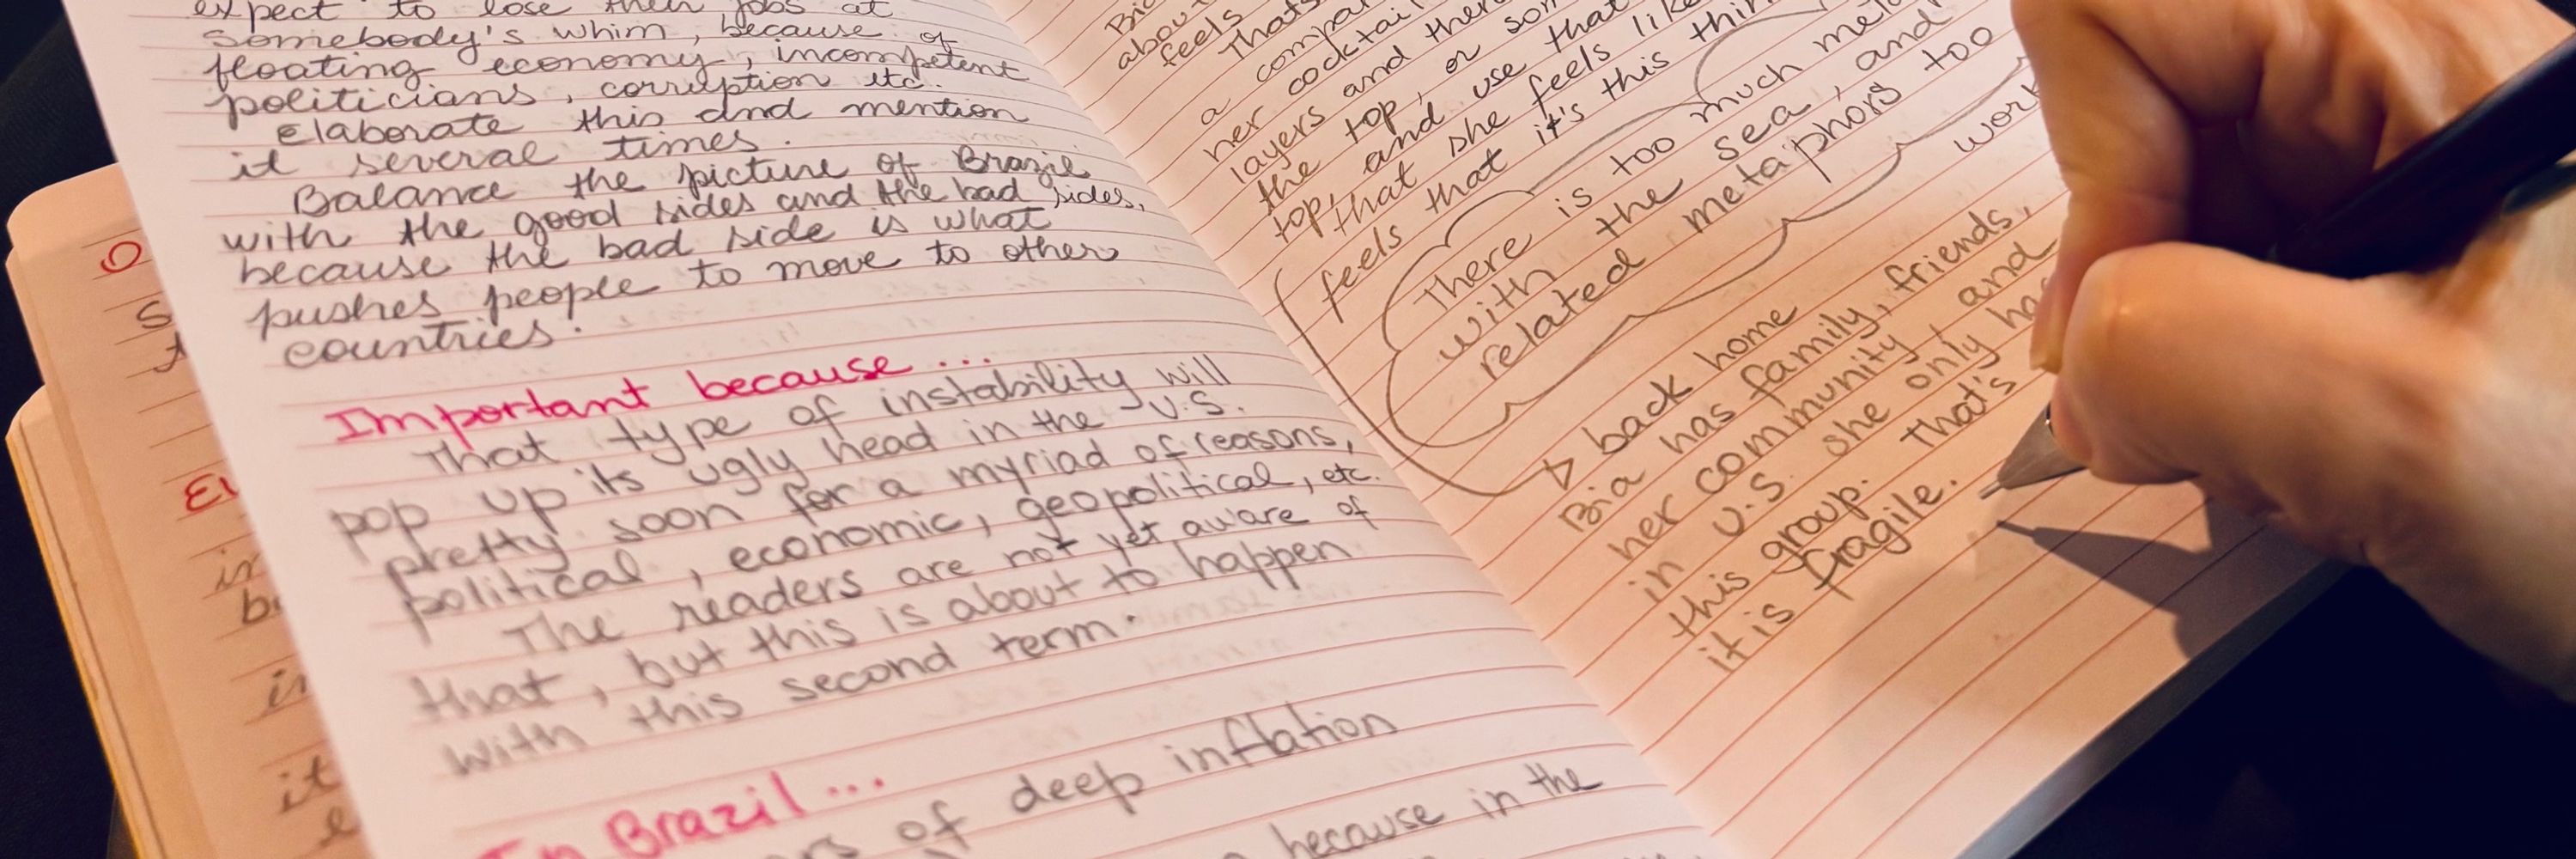 expect to lose their jobs at
somebody's whim, because of
floating economy, incompetent
politicians, corruption etc.
Elaborate this and mention
it several times.
Balance the picture of Brazil
with the good sides and the bad sides,
because the bad side is what
pushes people to move to other
countries.
Important because...
That type of instability will
pop up its ugly head in the U.S.
pretty soon for a myriad of reasons,
political, economic, geopolitical, etc.
The readers are not yet aware of
that, but this is about to happen
with this second term.
In Brazil...
of deep inflation
because in the
about
feels
That's
a compar
her cocktail
layers and ther
the top, or som
top, and use that
that she feels like
feels that it's this thin
There is too much meta
with the sea, and
related metaphors too
work
back home
Bia has family, friends,
her community, and
in U.S. she only has
this group. That's
it is fragile.